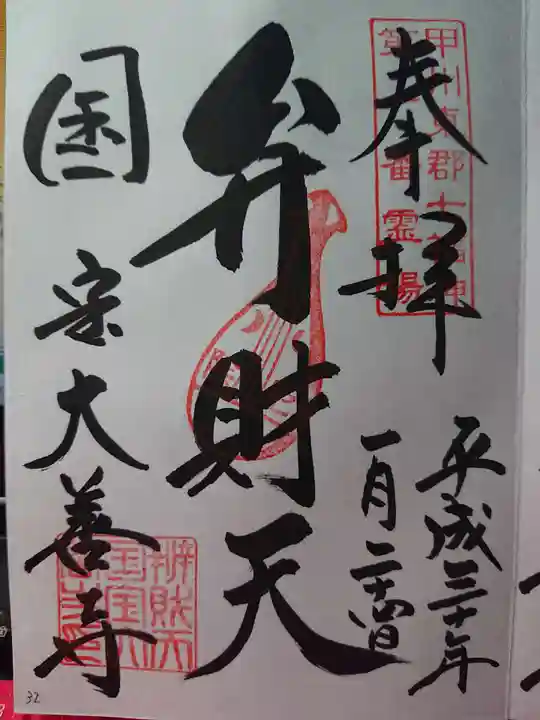 奉拝
甲州東郡七福神
第 番霊場
平成三十年
一月二十四日
弁財天
国宝大善寺
辨財天
国宝
32